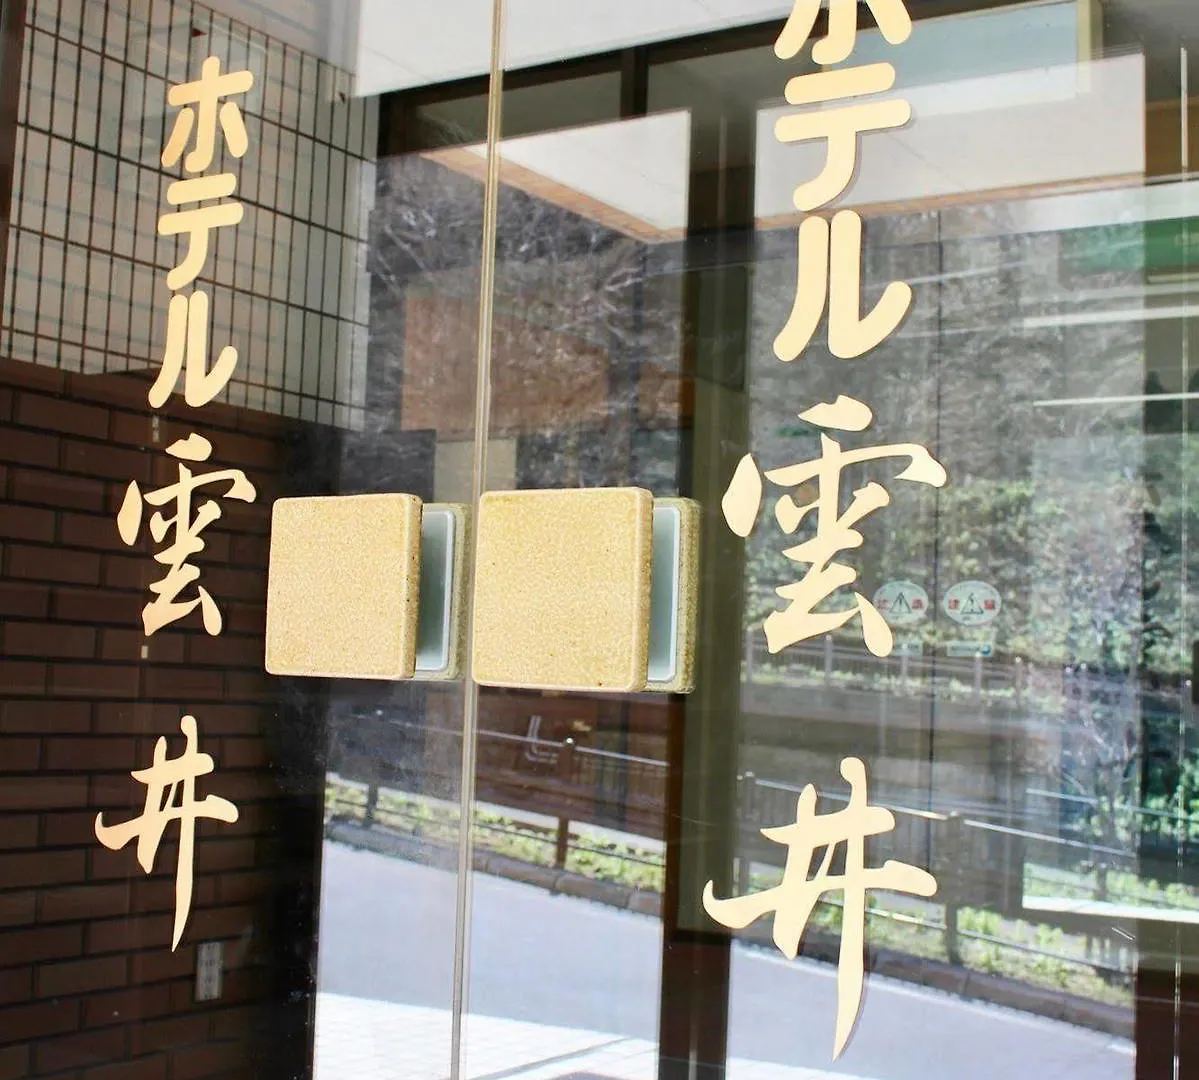 ホテル雲井
ホテル雲井